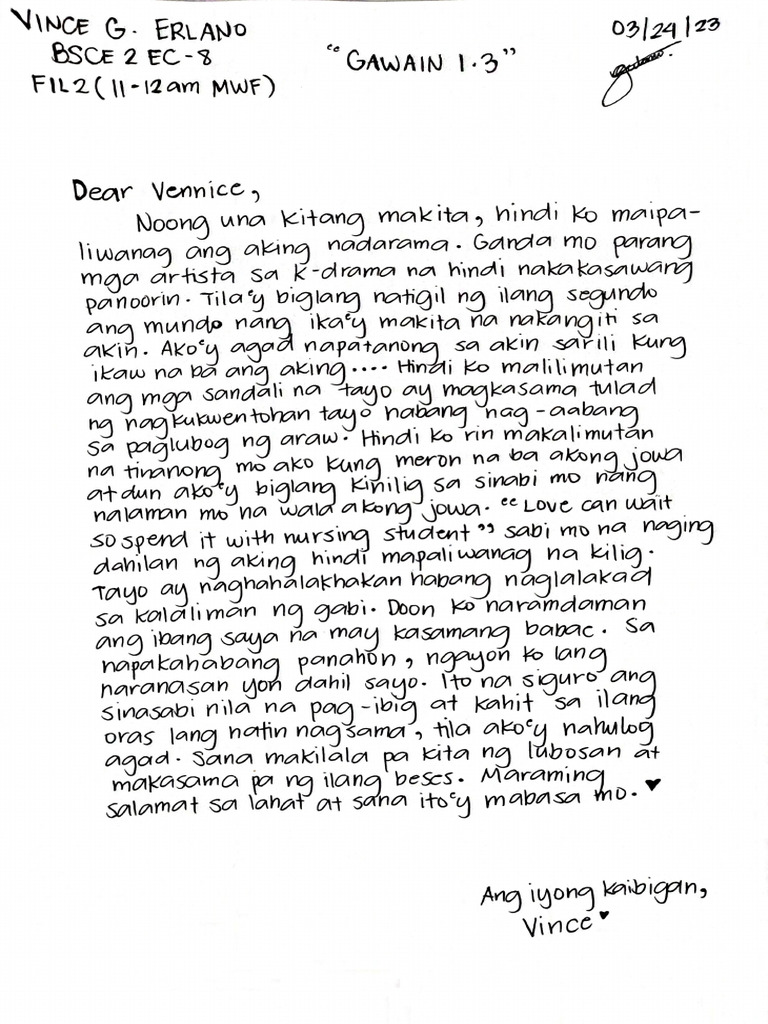 VINCE G. ERLANO
03/24/23
BSCE 2 EC-8
"GAWAIN 1.3"
FIL2 (11-12am MWF)
Dear Vennice,
Noong una kitang makita, hindi ko maipa-
liwanag ang aking nadarama. Ganda mo parang
mga artista sa k-drama na hindi nakakasawang
panoorin. Tila'y biglang natigil ng ilang segundo
ang mundo nang ika'y makita na nakangiti sa
akin. Ako'y agad napatanong sa akin sarili kung
ikaw na ba ang aking.... Hindi ko malilimutan
ang mga sandali na tayo ay magkasama tulad
ng nagkukwentohan tayo habang nag-aabang
sa paglubog ng araw. Hindi ko rin makalimutan
na tinanong mo ako kung meron na ba akong jowa
at dun ako'y biglang kinilig sa sinabi mo nang
nalaman mo na wala akong jowa. "Love can wait
so spend it with nursing student" sabi mo na naging
dahilan ng aking hindi mapaliwanag na kilig.
Tayo ay naghahalakhakan habang naglalakad
sa kalaliman ng gabi. Doon ko naramdaman
ang ibang saya na may kasamang babae. Sa
napakahabang panahon, ngayon ko lang
naranasan yon dahil sayo. Ito na siguro ang
sinasabi nila na pag-ibig at kahit sa ilang
oras lang natin nagsama, tila ako'y nahulog
agad. Sana makilala pa kita ng lubosan at
makasama pa ng ilang beses. Maraming
salamat sa lahat at sana ito'y mabasa mo. ♥
Ang iyong kaibigan,
Vince ♥